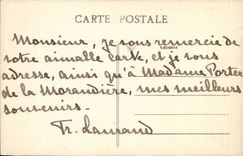 CARTE POSTALE
Monsieur, je vous remercie de
votre aimable carte, et je vous
adresse, ainsi qu'à Madame Porteu
de la Morandière, mes meilleurs
souvenirs.